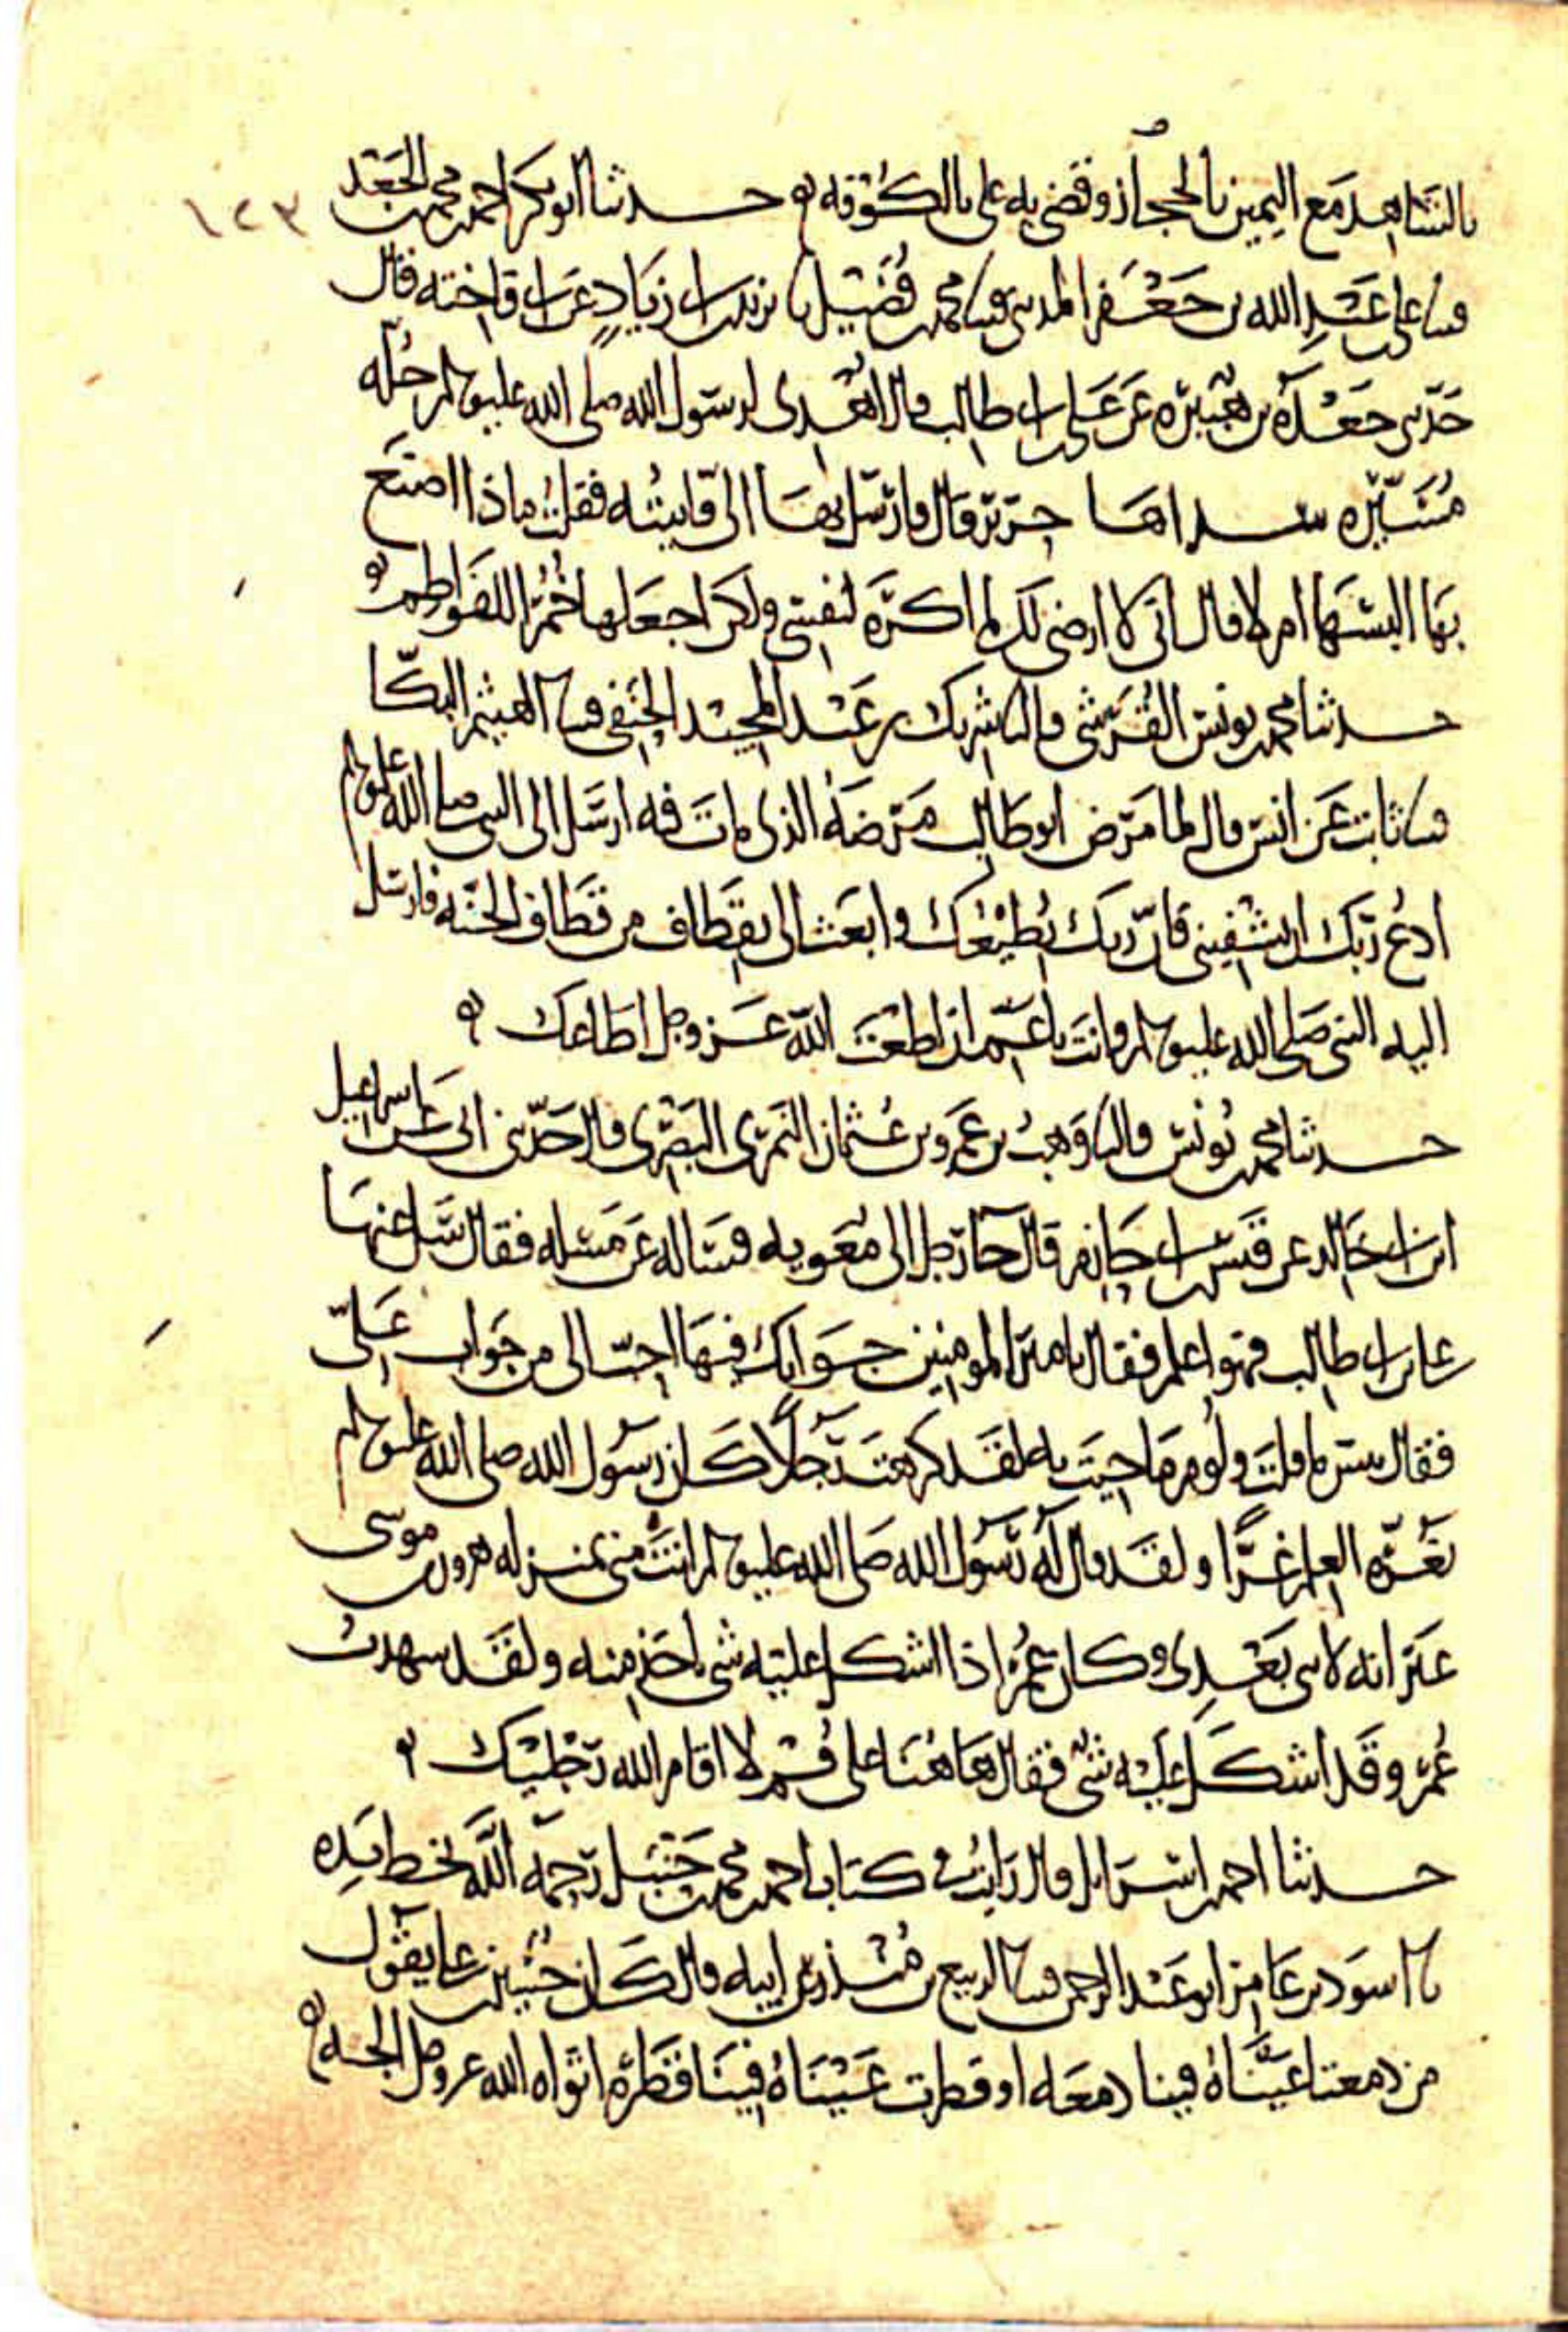 بالشاهد مع اليمين بالحجاز وقضى به على بالكوفه ه حدثنا ابو بكر احمد بن محمد بن الجعد
١٢٣
قثنا على بن عبد الله بن جعفر المدينى قثنا محمد بن فضيل نا يزيد بن ابى زياد عن ابى فاخته قال
حدثنى جعده بن هبيره عن على بن ابى طالب قال اهدى لرسول الله صلى الله عليه وسلم حله
مسيره سداها حرير قال فارسل بها الى فاتيته فقلت ماذا اصنع
بها البسها ام لا قال انى لا ارضى لك لما اكره لنفسى ولكن اجعلها خمرا للفواطم ه
حدثنا محمد بن يونس القرشى قال نا شريك بن عبد المجيد الحنفى قثنا الهيثم البكا
قثنا ثابت عن انس قال لما مرض ابو طالب مرضه الذى مات فيه ارسل الى النبى صلى الله عليه وسلم
ادع ربك ان يشفينى فان ربك يطيعك وابعث الى بقطاف من قطاف الجنه فارسل
اليه النبى صلى الله عليه وسلم وانت يا عم ان اطعت الله عز وجل اطاعك ه
حدثنا محمد بن يونس قال نا وهب بن عمرو بن عثمان النمرى البصرى قال حدثنى ابى عن اسماعيل
ابن ابى خالد عن قيس بن ابى حازم قال جا رجل الى معويه فساله عن مسله فقال سل عنها
على بن ابى طالب فهو اعلم فقال يا امير المومنين جوابك فيها احب الى من جواب على
فقال بئس ما قلت ولوم ما جيت به لقد كرهت رجلا كان رسول الله صلى الله عليه وسلم
يغره العلم غرا ولقد قال له رسول الله صلى الله عليه وسلم انت منى بمنزله هرون من موسى
غير انه لا نبى بعدى وكان عمر اذا اشكل عليه شى ياخذ منه ولقد شهدت
عمر وقد اشكل عليه شى فقال هاهنا على قم لا اقام الله رجليك ه
حدثنا احمد بن اسرايل قال رايت فى كتاب احمد بن محمد بن حنبل رحمه الله بخط يده
نا اسود بن عامر ابو عبد الرحمن قثنا الربيع بن منذر عن ابيه قال كان حسين بن على يقول
من دمعتا عيناه فينا دمعه او قطرت عيناه فينا قطره اثواه الله عز وجل الجنه ه